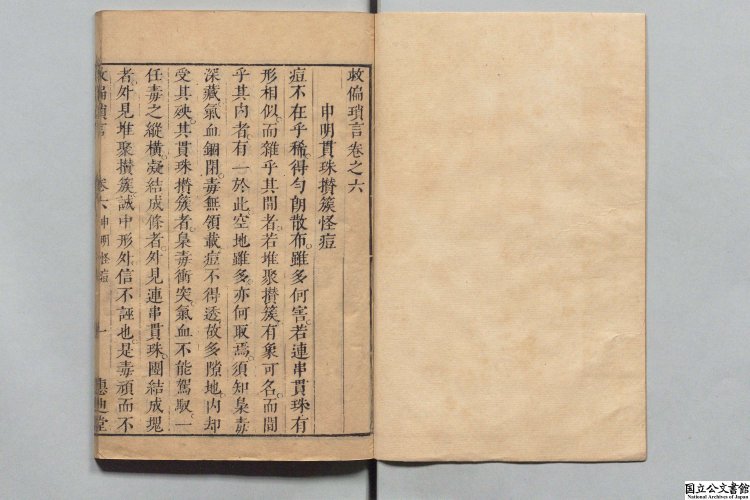 救偏瑣言卷之六
申明貫珠攢簇怪痘
痘不在乎稀得勻朗散布雖多何害若連串貫珠有
形相似而雜乎其間者若堆聚攢簇有象可名而間
乎其內者有一於此空地雖多亦何取焉須知梟毒
深藏氣血錮閉毒無領載痘不得透故多隙地內却
受其殃其貫珠攢簇者梟毒衝突氣血不能駕馭一
任毒之縱橫凝結成條者外見連串貫珠團結成塊
者外見堆聚攢簇誠中形外信不誣也是毒頑而不
救偏瑣言 卷六 申明怪痘 一 惠迪堂
国立公文書館
National Archives of Japan